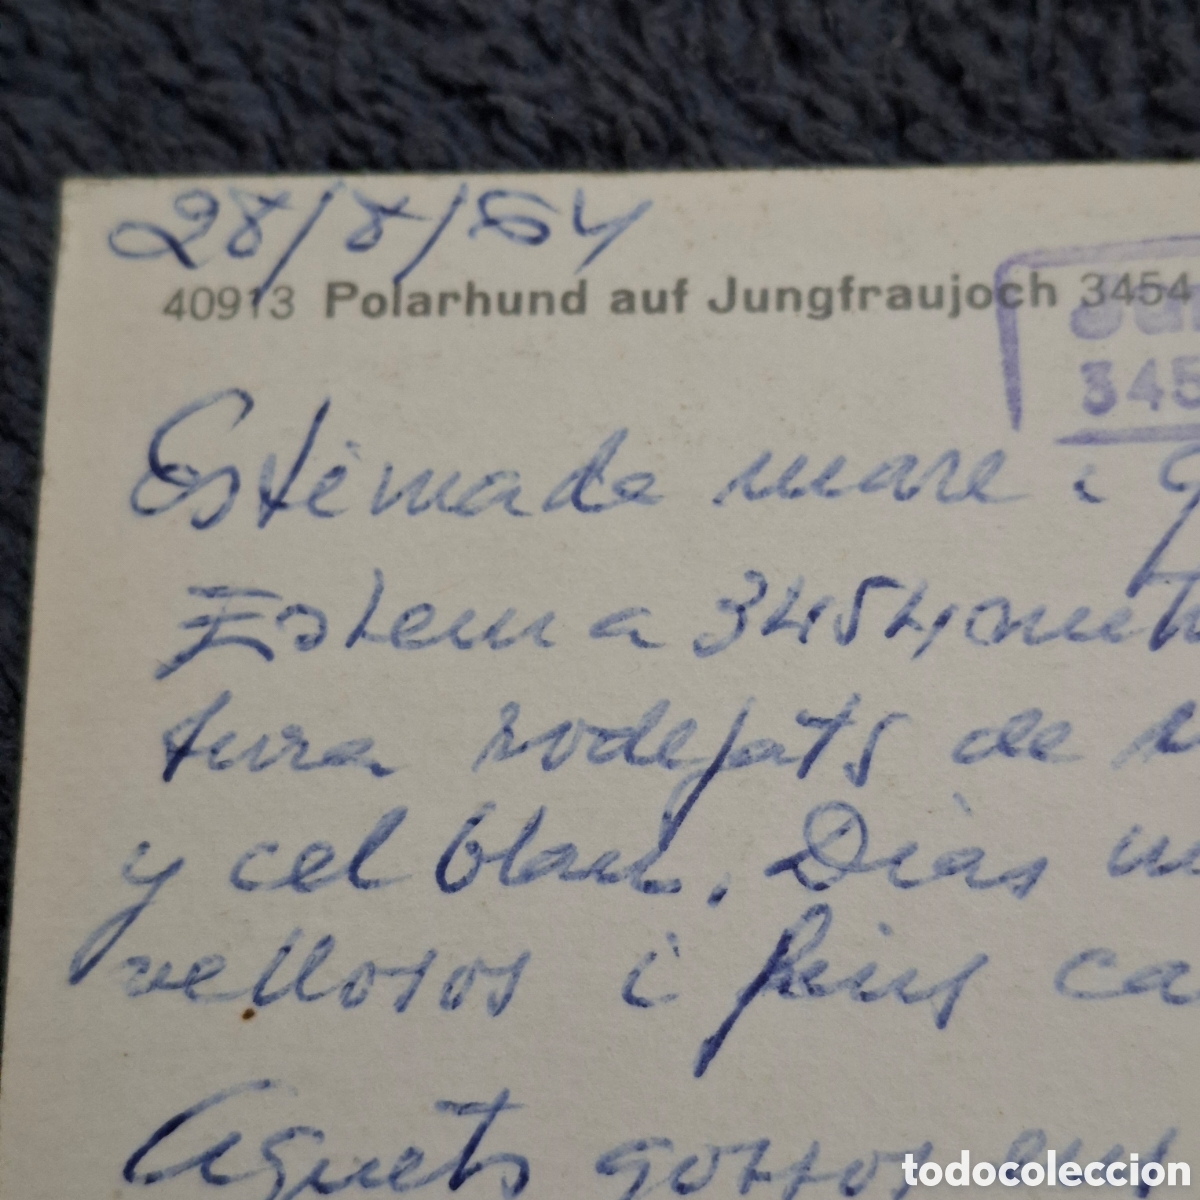 28/8/64
40913 Polarhund auf Jungfraujoch 3454
345
Estimada mare i
Estem a 3454
tura rodejats de
y cel blau. Dias
vellosos i fins
Aquets gossos
todocoleccion